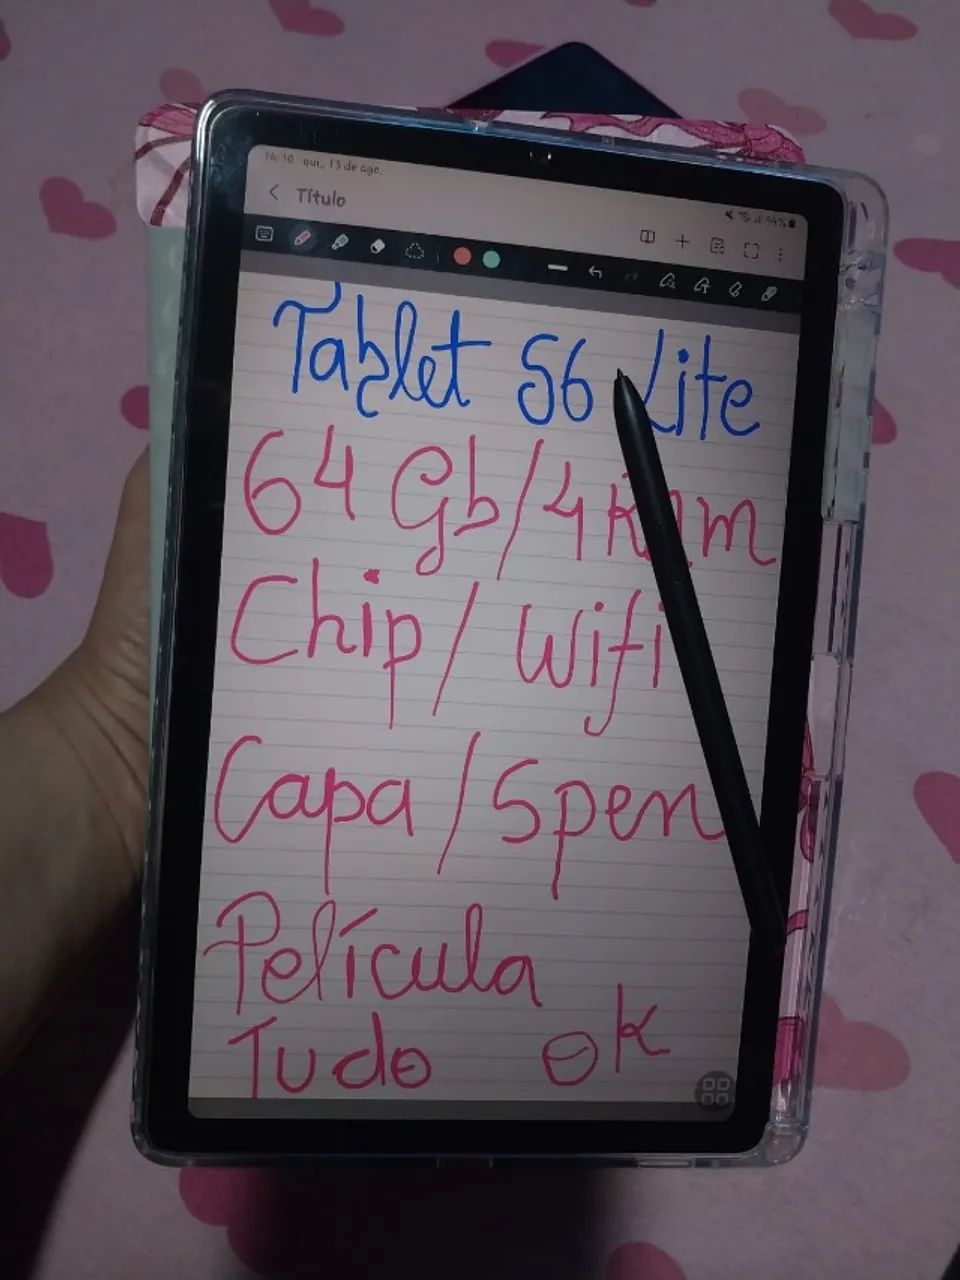 14:10 qui., 13 de ago.
94%
Título
Tablet S6 Lite
64 Gb/4 Ram
Chip/ Wifi
Capa/Spen
Película
Tudo ok